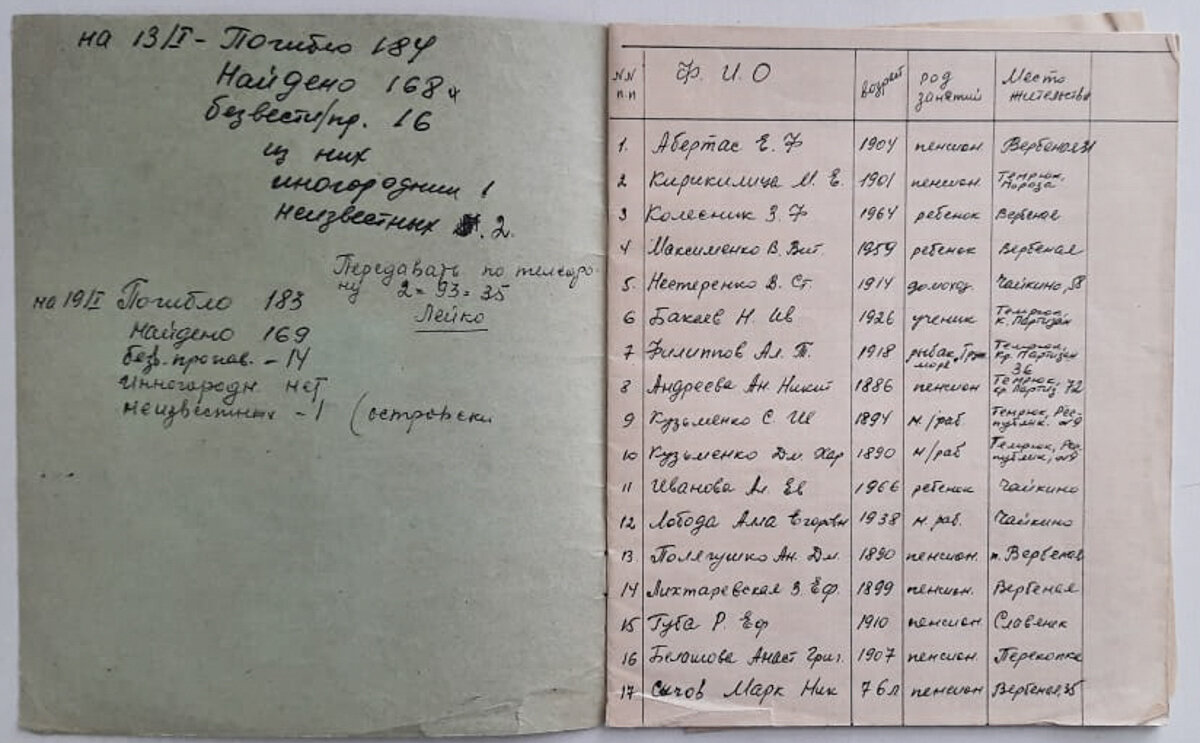 на 13/I - Погибло 184
Найдено 168
безвести/пр. 16
из них
иногородних 1
неизвестных 2.
Передавать по телефо-
ну 2=93=35
Лейко
на 19/I Погибло 183
найдено 169
безв. пропав. - 14
инногородн нет
неизвестных - 1 (островски
N.N п.п Ф. И. О возраст род занятий Место жительства
1. Абертас Е. Ф 1904 пенсион. Вербеная 31
2 Кирикилица М. Е. 1901 пенсион. Темрюк, Мороза
3 Колесник З. Ф 1964 ребенок Вербеная
4 Максименко В. Вит 1959 ребенок Вербеная
5. Нестеренко В. Ст. 1914 домохоз. Чайкино, 58
6 Бакаев Н. Ив 1926 ученик Темрюк, к. Партизан
7 Филиппов Ал. Т. 1918 рыбак, море Темрюк, кр. Партизан 36
8 Андреева Ан. Никит 1886 пенсион Темрюк, кр. Партиз 72
9 Кузьменко С. Ш 1894 н./раб. Темрюк, Рес-публик. 9
10 Кузьменко Дм. Хар 1890 н/раб Темрюк, Рес-публик, 9
11 Иванова Ал. Ев 1966 ребенок Чайкино
12 Лобода Егоровн 1938 н. раб. Чайкино
13. Полягушко Ан. Дм. 1890 пенсион. п. Вербеная
14 Лихтаревская З. Еф. 1899 пенсион. Вербеная
15 Губа Р. Еф 1910 пенсион. Славянск
16 Белашова Анаст Григ. 1907 пенсион. Перекопка
17. Сычов Марк Ник 76 л пенсион Вербеная, 35